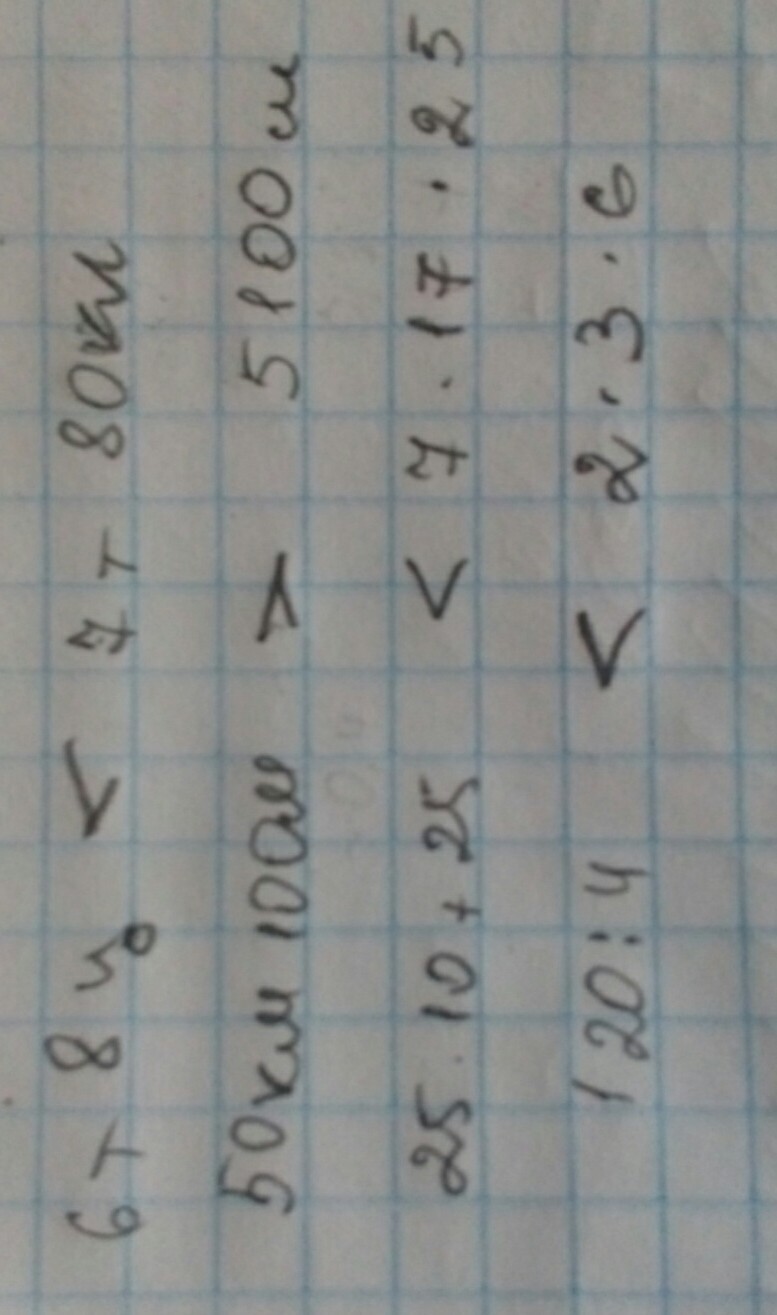 6т 8 ц < 7т 80км
50км 100м > 5100м
25 · 10 + 25 < 7 · 17 · 25
120 : 4 < 2 · 3 · 6